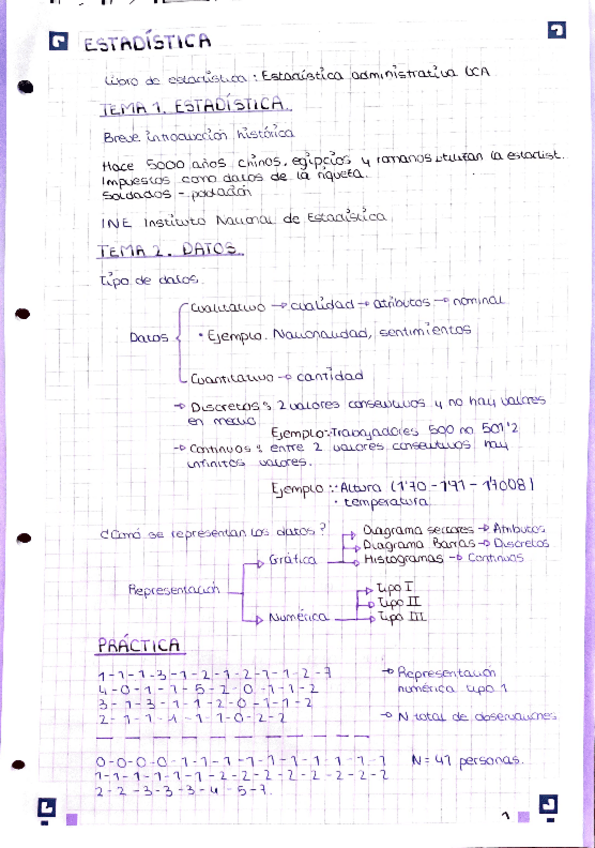 ESTADÍSTICA
Libro de estadística : Estadística administrativa UCA
TEMA 1. ESTADÍSTICA.
Breve introducción histórica
Hace 5000 años chinos, egipcios y romanos utilizan la estadist.
Impuestos como datos de la riqueza.
Soldados - población
INE Instituto Nacional de Estadística
TEMA 2. DATOS.
Tipo de datos.
Datos
Cualitativo → cualidad → atributos → nominal
• Ejemplo. Nacionalidad, sentimientos
Cuantitativo → cantidad
→ Discretos : 2 valores consecutivos y no hay valores
en medio
Ejemplo: Trabajadores 500 no 501'2
→ Continuos : entre 2 valores consecutivos hay
infinitos valores.
Ejemplo : Altura (1'70 - 1'71 - 1'7008)
• temperatura
¿Cómo se representan los datos?
Representación
Gráfica
Diagrama sectores → Atributos
Diagrama Barras → Discretos
Histogramas → Continuos
Numérica
Tipo I
Tipo II
Tipo III
PRÁCTICA
1-1-1-3-1-2-1-2-1-1-2-7
4-0-1-1-5-2-0-1-1-2
3-1-3-1-1-2-0-1-1-2
2-1-1-1-1-1-0-2-2
→ Representación
numérica tipo 1
→ N total de observaciones
0-0-0-0-1-1-1-1-1-1-1-1-1-1
1-1-1-1-1-1-2-2-2-2-2-2-2-2
2-2-3-3-3-4-5-7.
N = 41 personas.
1